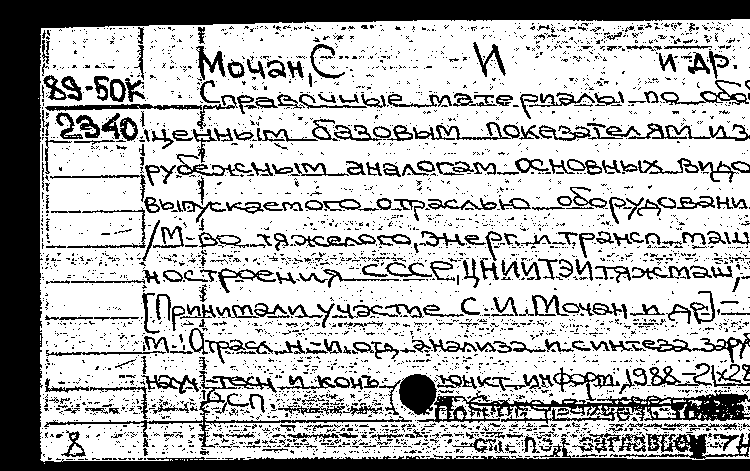 Мочан, С И и др.
89-50К
Справочные материалы по обоб
2340 щенным базовым показателям и за
рубежным аналогам основных видо
выпускаемого отраслью оборудовани
/М-во тяжелого, энерг. и трансп. маш
ностроения СССР, ЦНИИТЭИтяжмаш;
[Принимали участие С.И. Мочан и др]. –
М.: Отрасл. н.-и. отд. анализа и синтеза зару
науч.-техн. и конъюнкт. информ., 1988 – 21х28
ДСП.
см. под заглавием
8